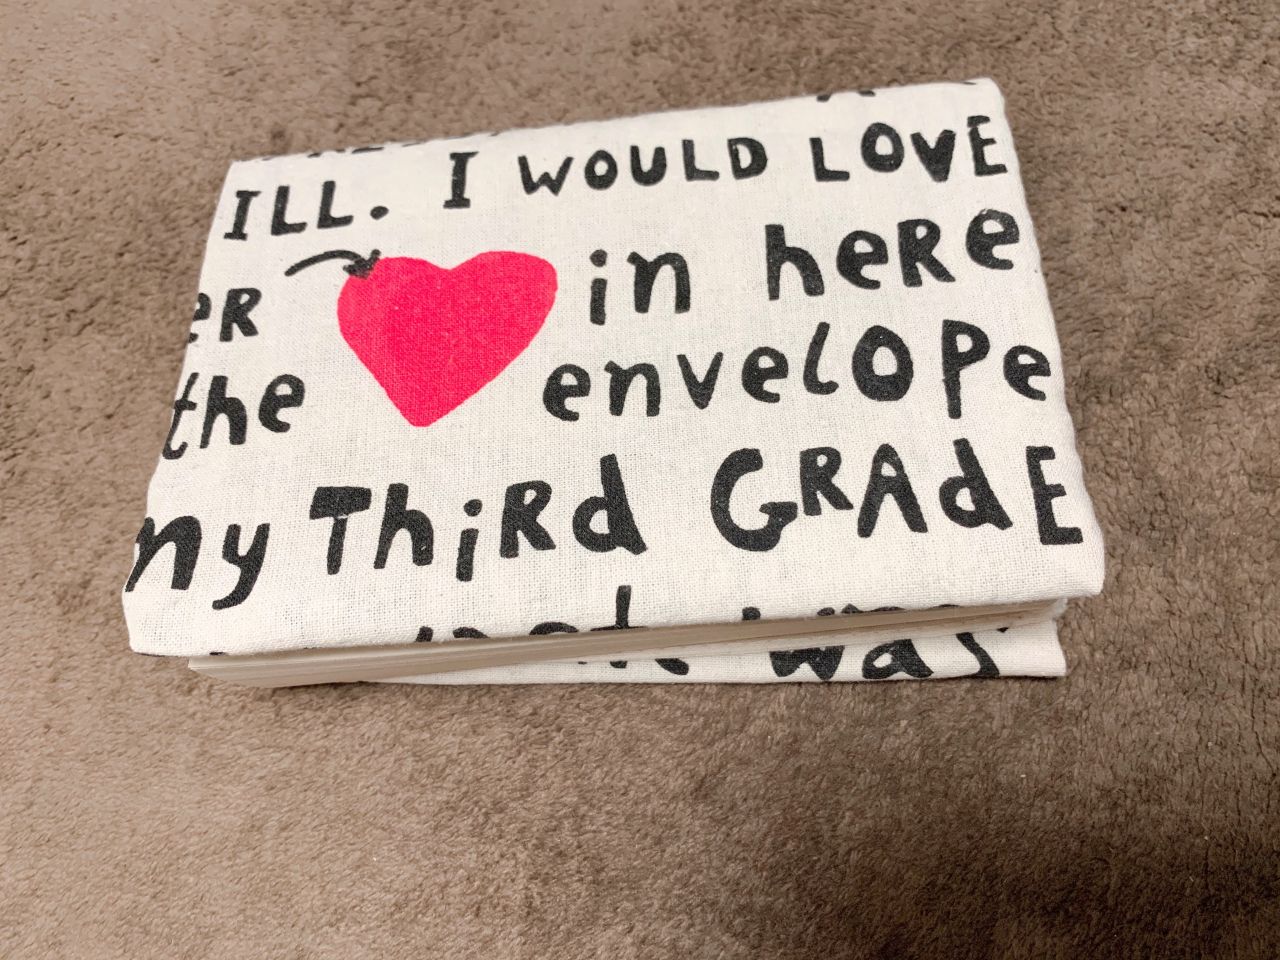 ILL. I WOULD LOVE
eR in heRe
the envelOPe
my ThiRd GRAdE
was